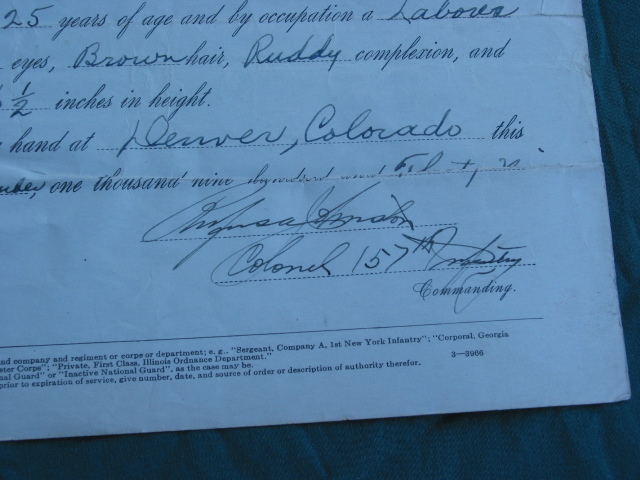 25 years of age and by occupation a Laborer
eyes, Brown hair, Ruddy complexion, and
½ inches in height.
hand at Denver, Colorado this
one thousand nine hundred and
Colonel 157th Infantry
Commanding.
and company and regiment or corps or department; e. g., "Sergeant, Company A, 1st New York Infantry"; "Corporal, Georgia
ster Corps"; "Private, First Class, Illinois Ordnance Department."
nal Guard" or "Inactive National Guard", as the case may be.
prior to expiration of service, give number, date, and source of order or description of authority therefor.
3—3966